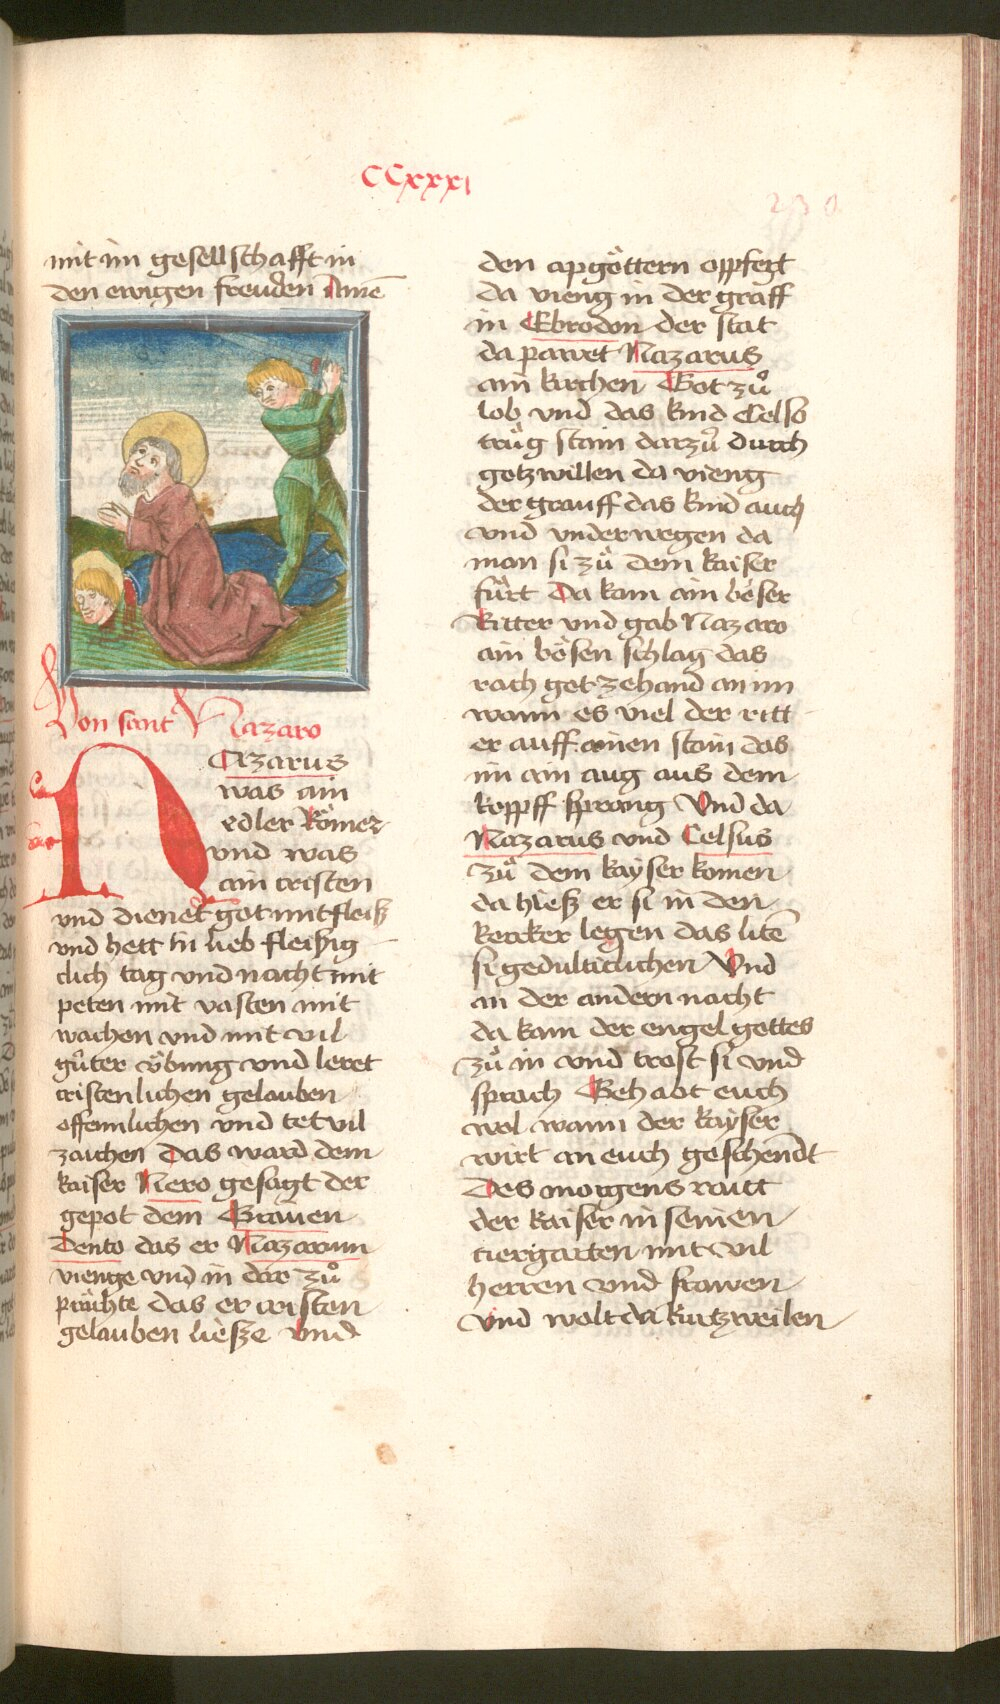 CCxxxi
230
mit im gesellschafft in
den ewigen freuden Amē
Von sant Nazaro
NAzarus
was ain
edler Römer
vnd was
ain cristen
vnd dienet got mit fleiß
vnd hett in lieb fleißig
clich tag vnd nacht mit
peten mit vasten mit
wachen vnd mit vil
gůter vͤbung vnd leret
cristenlichen gelauben
offennlichen vnd tet vil
zaichen Das ward dem
kaiser Nero gesagt der
gepot dem Grauen
Dento das er Nazarum
vienge vnd in dar zů
prächte das er cristen
gelauben liesze vnd
den apgöttern oppfert
da vieng in der graff
in Ebrodon der stat
da pawet Nazarus
ain kirchen Got zů
lob vnd das kind Celso
trůg stain darzů durch
getz willen da vieng
der grauff das kind auch
vnd vnderwegen da
man si zů dem kaiser
fůrt Da kam ain böser
Ritter vnd gab Nazaro
ain bösen schlag das
rach got zehand an im
wann es viel der ritt
er auff ainen stain das
im ain aug aus dem
koppff sprang Vnd da
Nazarus vnd Celsus
zů dem kayser komen
da hieß er si in den
kercker legen das litē
si gedulticlichen Vnd
an der andern nacht
da kam der engel gottes
zů in vnd trost si vnd
sprach Gehabt euch
wol wann der kayser
wirt an euch geschendt
Des morgens raitt
der kaiser in seinen
tiergarten mit vil
herren vnd frawen
vnd wolt da kurtzweilen